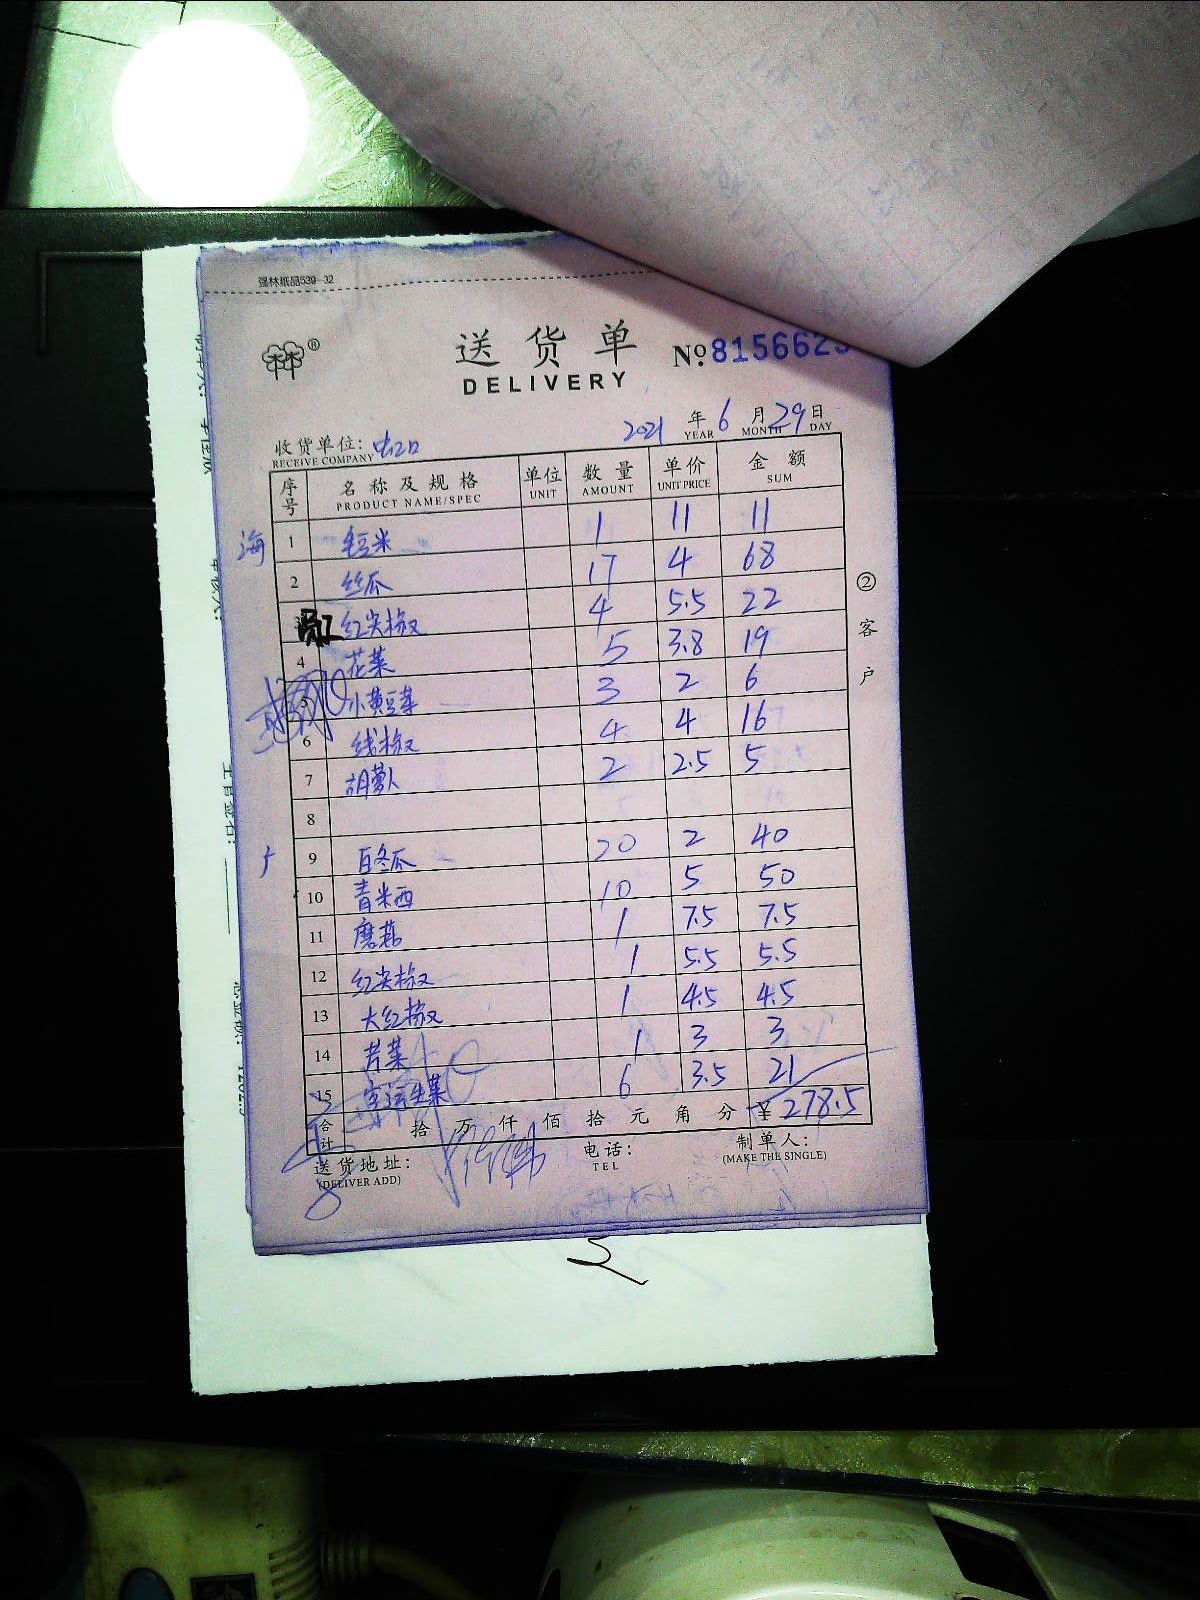 强林纸品539-32
送货单 №815662
DELIVERY
2021年6月29日
YEAR MONTH DAY
收货单位:虹口
RECEIVE COMPANY
序号 名称及规格 单位 数量 单价 金额
PRODUCT NAME/SPEC UNIT AMOUNT UNIT PRICE SUM
海 1 毛豆米 1 11 11
2 丝瓜 17 4 68
3 红尖椒 4 5.5 22
4 花菜 5 3.8 19
5 小黄豆芽 3 2 6
6 线椒 4 4 16
7 胡萝卜 2 2.5 5
8
9 白冬瓜 20 2 40
10 青米西 10 5 50
11 蘑菇 1 7.5 7.5
12 红尖椒 1 5.5 5.5
13 大红椒 1 4.5 4.5
14 芹菜 1 3 3
15 生菜 6 3.5 21
合计 拾万仟佰拾元角分 ¥278.5
送货地址: 电话: 制单人:
(DELIVER ADD) TEL (MAKE THE SINGLE)
②客户